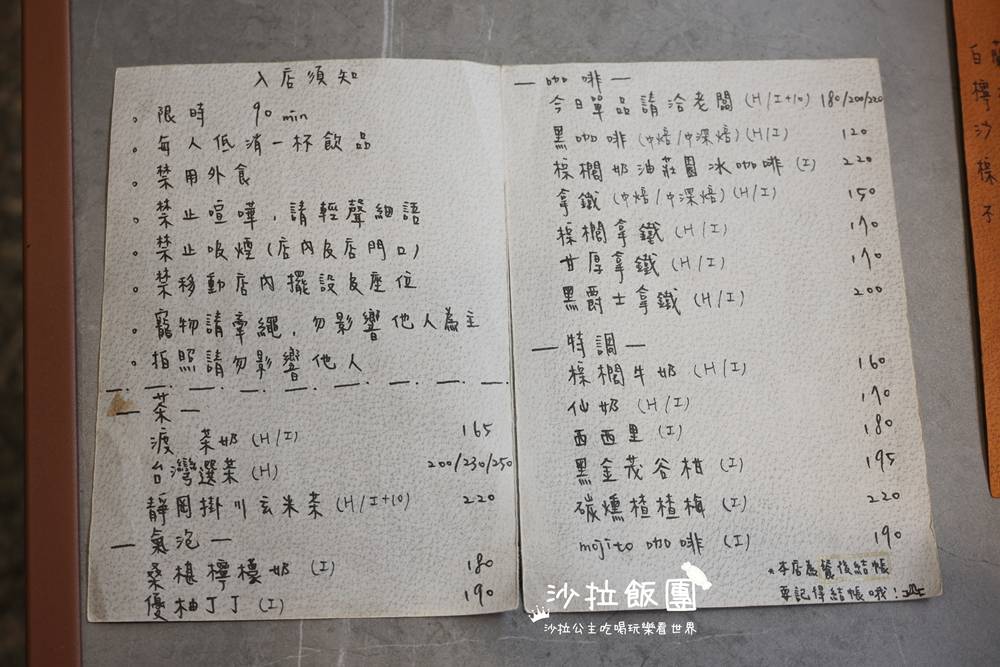 入店須知
。限時 90 min
。每人低消一杯飲品
。禁用外食
。禁止喧嘩,請輕聲細語
。禁止吸煙(店內及店門口)
。禁移動店內擺設及座位
。寵物請牽繩,勿影響他人為主
。拍照請勿影響他人
— 茶 —
渡 茶奶 (H/I) 165
台灣選茶 (H) 200/230/250
靜岡掛川玄米茶 (H/I+10) 220
— 氣泡 —
桑椹檸檬奶 (I) 180
優柚丁丁 (I) 190
— 咖啡 —
今日單品請洽老闆 (H/I+10) 180/200/220
黑咖啡 (中焙/中深焙) (H/I) 120
棕櫚奶油莊園冰咖啡 (I) 220
拿鐵 (中焙/中深焙) (H/I) 150
棕櫚拿鐵 (H/I) 170
甘厚拿鐵 (H/I) 170
黑爵士拿鐵 (H/I) 200
— 特調 —
棕櫚牛奶 (H/I) 160
仙奶 (H/I) 170
西西里 (I) 180
黑金茂谷柑 (I) 195
碳燻楂楂梅 (I) 220
mojito 咖啡 (I) 190
*本店為餐後結帳
要記得結帳哦!
沙拉飯團
沙拉公主吃喝玩樂看世界
白檸沙棕子